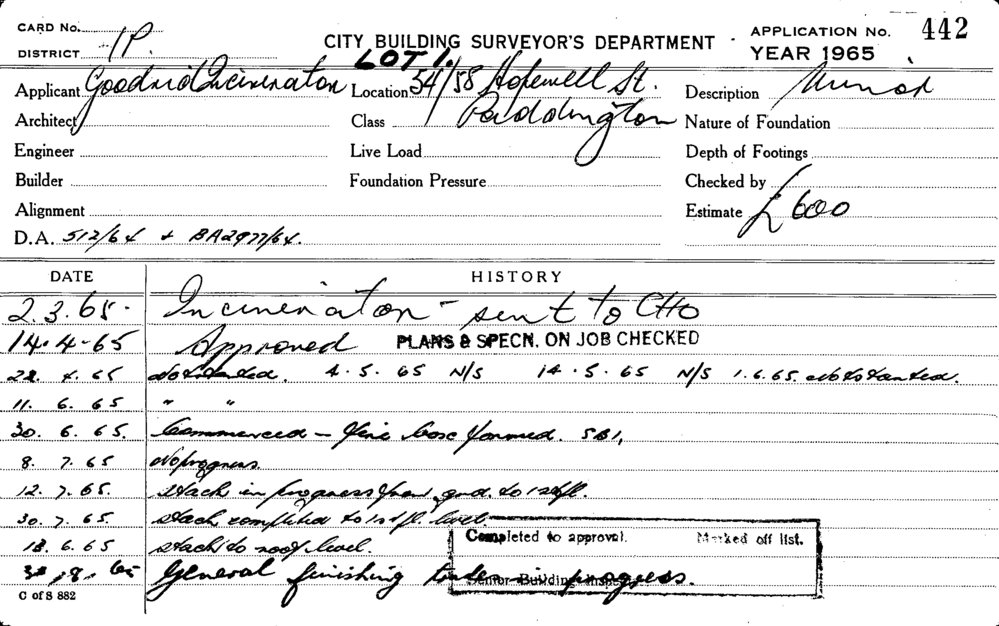 CARD No. CITY BUILDING SURVEYOR'S DEPARTMENT APPLICATION No. 442
DISTRICT 1P. LOT 1. YEAR 1965
Applicant Location 54/58 Hopewell St. Description Minor
Architect Class Paddington Nature of Foundation
Engineer Live Load Depth of Footings
Builder Foundation Pressure Checked by
Alignment Estimate £ 600
D.A. 512/64 + BA2977/64.
DATE HISTORY
2.3.65. Incinerator - sent to CHO
14.4.65 Approved PLANS & SPECN. ON JOB CHECKED
22 4.65 Not started. 4.5.65 N/S 14.5.65 N/S 1.6.65. Not started.
11. 6. 65 " "
30. 6. 65. Commenced - fire box formed. SBI,
8. 7. 65 No progress.
12. 7. 65. Stack in progress from gnd. to 1st fl.
30. 7. 65. Stack completed to 1st fl. level
18. 6. 65 Stack to roof level.
Completed to approval. Marked off list.
8. 65 General finishing trades in progress.
Senior Building Inspector
C of S 882